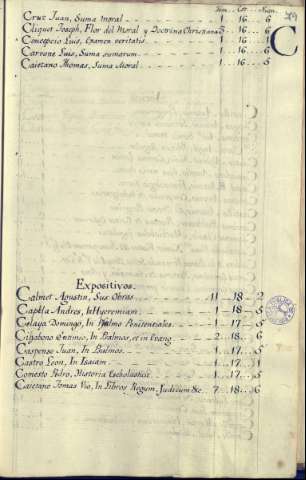 Tom. Cor. Num.
C
Cruz Juan, Suma moral 1 16 6
Cliquet Joseph, Flor del Moral y Doctrina Christiana 3 16 6
Concepcio Luis, Examen veritatis 1 16 1
Carvone Luis, Suma sumarum 1 16 6
Caietano Thomas, Suma Moral 1 16 5
Expositivos.
Calmet Agustin, Sus Obras 11 18 2
Capella Andres, In Hyeremiam 1 18 5
Celaya Domingo, In Psalmo Penitenciales 1 17 5
Cigabono Eutimio, In Psalmos, et in Evang. 2 18 6
Caspense Juan, In Psalmos 1 17 5
Castro Leon, In Isaiam 1 17
Comesto Pedro, Historia Escholastica 1 17 5
Caietano Tomas Vio, In Libros Regum, Judicum &c 7 18 6